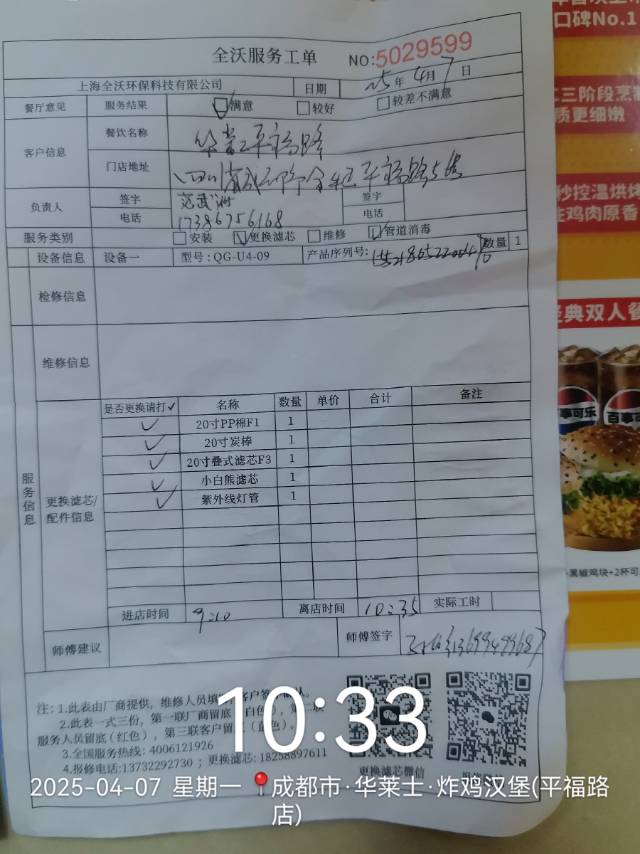 口碑No.1
全沃服务工单 NO:5029599
上海全沃环保科技有限公司 日期 25年4月7日
餐厅意见 服务结果 满意 较好 较差不满意
客户信息 餐饮名称 华莱士平福路
门店地址
负责人 签字 签字
电话 17386756168 电话
服务类别 安装 更换滤芯 维修 管道消毒
设备信息 设备一 型号:QG-U4-09 产品序列号: 数量 1
检修信息
维修信息
服务信息
更换滤芯/配件信息
是否更换请打✓ 名称 数量 单价 合计 备注
✓ 20寸PP棉F1 1
✓ 20寸炭棒 1
✓ 20寸叠式滤芯F3 1
✓ 小白熊滤芯 1
✓ 紫外线灯管 1
进店时间 9:10 离店时间 10:35 实际工时
师傅建议 师傅签字 13699499687
注:1.此表由厂商提供,维修人员填
2.此表一式三份,第一联厂商留底
服务人员留底(红色),第三联客户留
3.全国服务热线:4006121926
4.报修电话:13732292730 ;更换滤芯:18258897611
更换滤芯微信
10:33
2025-04-07 星期一 成都市·华莱士·炸鸡汉堡(平福路店)
三阶段烹
质更细嫩
秒控温烘烤
鸡肉原香
经典双人餐
百事可乐
黑椒鸡块+2杯可